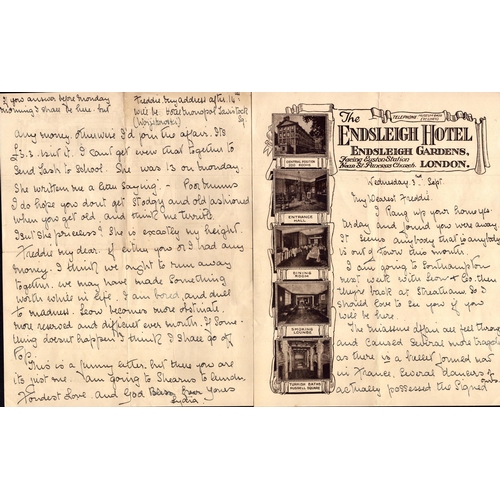 The
ENDSLEIGH HOTEL
TELEPHONE
ENDSLEIGH GARDENS,
Facing Euston Station
Near St. Pancras Church.
LONDON.
CENTRAL POSITION
200 ROOMS
ENTRANCE
HALL
DINING
ROOM
SMOKING
LOUNGE
TURKISH BATHS
RUSSELL SQUARE
Wednesday 3rd Sept.
My Dearest Freddie.
I Rang up your home yes-
terday and found you were away.
It seems anybody that is anybody
is out of town this month.
I am going to Southampton
next week with Leon & Co. then
they're back at Streatham. So I
should love to see you if you
will be here.
The affair are fell through
and caused several more tragedies
as there is a ballet formed was
in France. Several dancers
actually possessed the signed
If you answer before Monday
morning I shall be here. but
Freddie. My address after 16th
will be. Hotel Tavistock
Sq.
any money. Otherwise I'd join the affair. It's
£5.5. isn't it. I can't get even that together to
send Cash to school. She was in on Monday
She written me a saying. - Poor
I do hope you don't get stodgy and old fashioned
when you get old. and think me turrible.
Isn't she priceless? She is exactly my height.
Freddie my dear. if either you or I had any
money. I think we ought to run away
together. We may have made something
worth while in life. I am bored and dull
to madness. Leon becomes more obstinate,
more reserved and different ever month. If some-
thing doesn't happen I think I shall go off
This is a funny letter. but there you are
its just me. I am going to Shearns to lunch.
Fondest Love. and God Bless. Ever Yours
Lydia